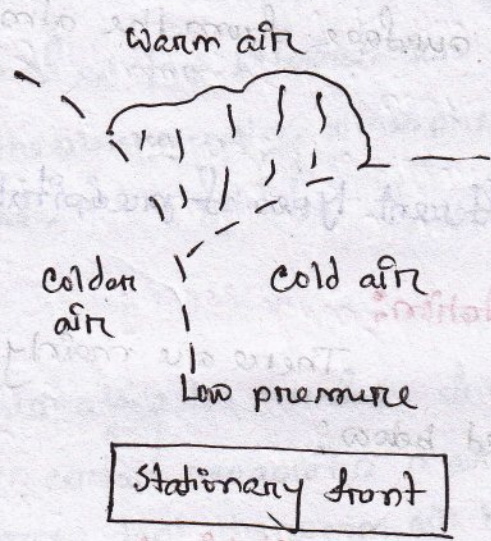 Warm air
Colder
air
Cold air
Low pressure
Stationary front